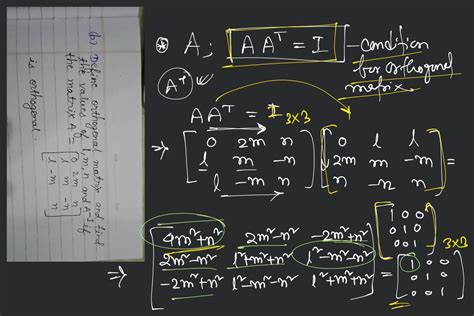 (b) Define orthogonal matrix and find
the values of l, m, n and A-1 if
the matrix A = [0 2m n
l m -n
l -m n]
is orthogonal.
* A; A Aᵀ = I - condition
for orthogonal
matrix
Aᵀ
A Aᵀ = I 3×3
⇒ [0 2m n
l m -n
l -m n] [0 l l
2m m -m
n -n n] =
[1 0 0
0 1 0
0 0 1] 3×3
⇒ [4m²+n² 2m²-n² -2m²+n²
2m²-n² l²+m²+n² l²-m²-n²
-2m²+n² l²-m²-n² l²+m²+n²] = [1 0 0
0 1 0
0 0 1]